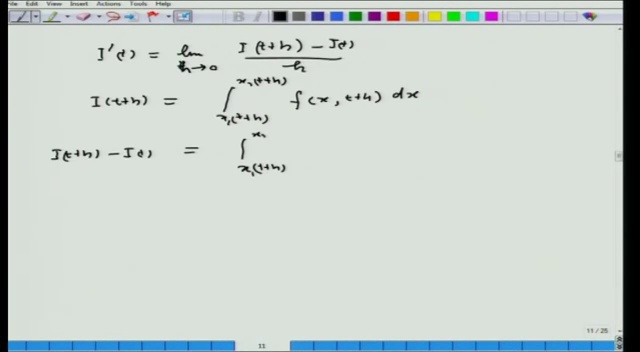 File Edit View Insert Actions Tools Help
I'(t) = lim h→0 I(t+h) − I(t) / h
I(t+h) = ∫ x₁(t+h) x₂(t+h) f(x, t+h) dx
I(t+h) − I(t) = ∫ x₁(t+h) x₂
11 / 25
11